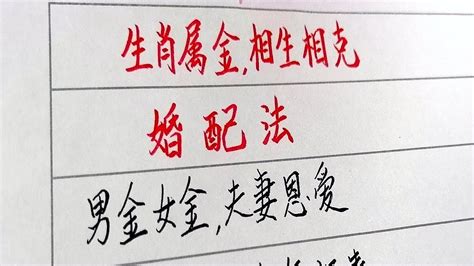 生肖属金,相生相克
婚配法
男金女金,夫妻恩爱